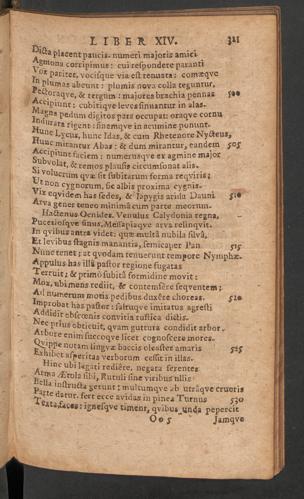 LIBER XIV. 321
Dicta placent paucis. numeri majoris amici
Agmona corripimus: cui respondere paranti
Vox pariter, vocisque via est tenuata: comæque
In plumas abeunt: plumis nova colla teguntur,
Pectoraque, & tergum: majores brachia pennas 500
Accipiunt: cubitique leves sinuantur in alas.
Magna pedum digitos pars occupat: oraque cornu
Indurata rigent: finemque in acumine ponunt.
Hunc Lycus, hunc Idas, & cum Rhetenore Nycteus,
Hunc mirantur Abas: & dum mirantur, eandem 505
Accipiunt faciem: numerusque ex agmine major
Subvolat, & remos plausis circumsonat alis.
Si volucrum quæ sit subitarum forma requiris;
Ut non cygnorum, sic albis proxima cygnis.
Vix equidem has sedes, & Iapygis arida Dauni 510
Arva gener teneo minima cum parte meorum.
Hactenus Oenides. Venulus Calydonia regna,
Peucetiosque sinus, Messapiaque arva relinquit.
In quibus antra videt: quæ multa nubila silva,
Et levibus stagnis manantia, semicaper Pan 515
Nunc tenet; at quodam tenuerunt tempore Nymphæ.
Appulus has illa pastor regione fugatas
Terruit; & primo subita formidine movit:
Mox, ubi mens rediit, & contemsere sequentem;
Ad numerum motis pedibus duxere choreas. 520
Improbat has pastor: saltuque imitatus agresti
Addidit obscœnis convitia rustica dictis.
Nec prius obticuit, quam guttura condidit arbor.
Arbore enim succoque licet cognoscere mores.
Quippe notam linguæ baccis oleaster amaris 525
Exhibet: asperitas verborum cessit in illas.
Hinc ubi legati rediere, negata ferentes
Arma Ætola sibi, Rutuli sine viribus illis
Bella instructa gerunt: multumque ab utraque cruoris
Parte datur. fert ecce avidas in pinea Turnus 530
Texta, faces: ignesque timent, quibus unda pepercit
Oo 5 Jamque